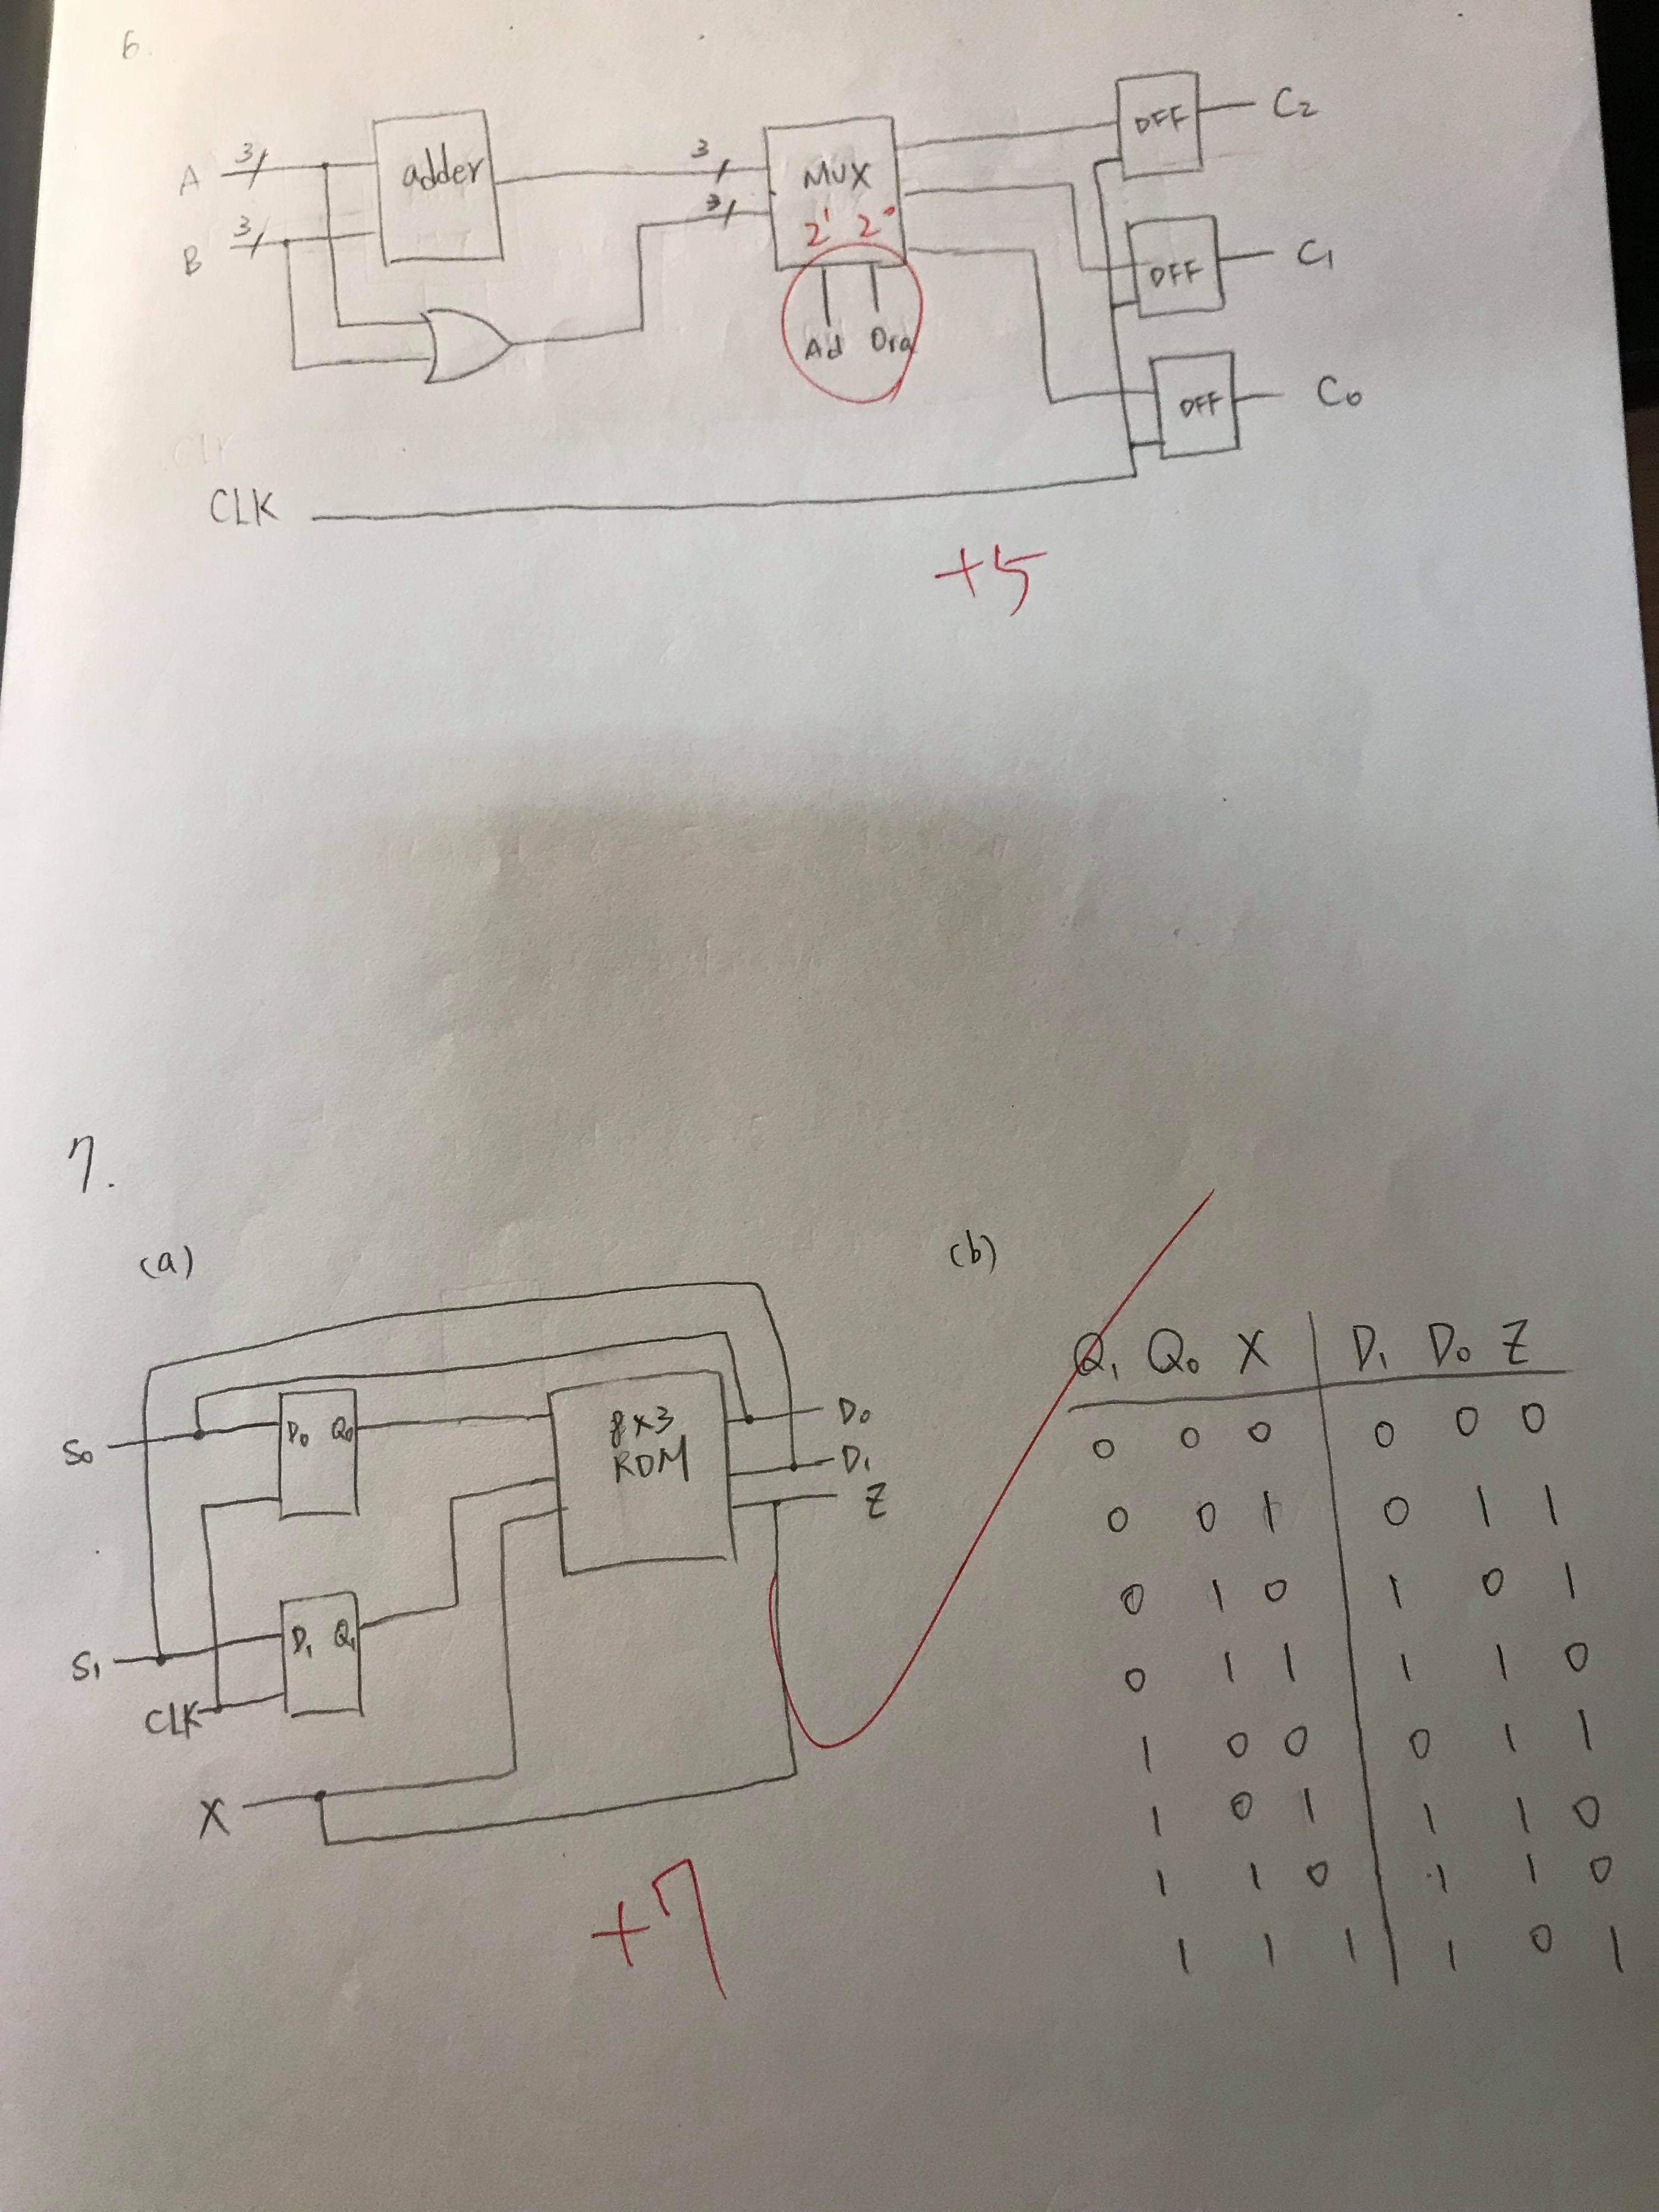 6.
A 3/
B 3/
adder
3/
3/
MUX
2¹ 2⁰
Ad Ora
DFF C₂
DFF C₁
DFF C₀
CLK
+5
7.
(a)
S₀
D₀ Q₀
8x3
ROM
D₀
D₁
Z
S₁
D₁ Q₁
CLK
X
+7
(b)
Q₁ Q₀ X D₁ D₀ Z
0 0 0 0 0 0
0 0 1 0 1 1
0 1 0 1 0 1
0 1 1 1 1 0
1 0 0 0 1 1
1 0 1 1 1 0
1 1 0 1 1 0
1 1 1 1 0 1